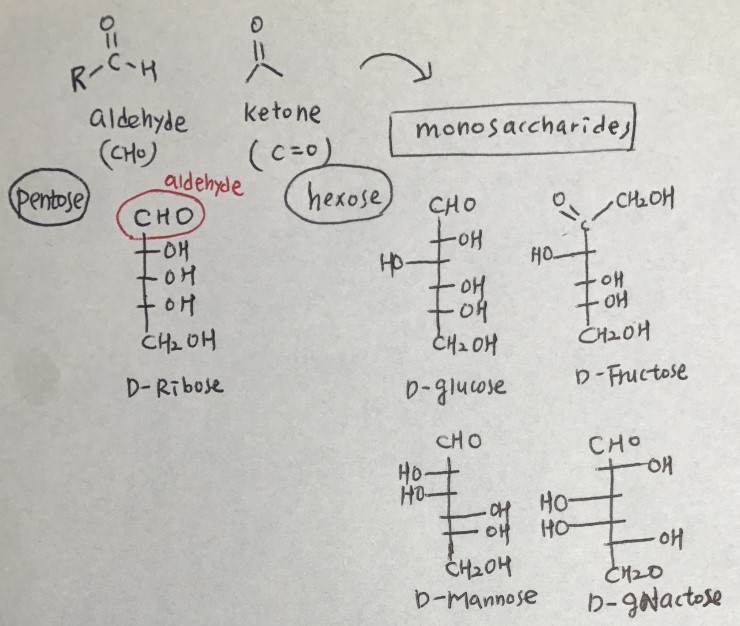 O
O
R-C-H
aldehyde
ketone
(CHO)
(C=O)
monosaccharides
pentose
aldehyde
CHO
OH
OH
OH
CH2OH
D-Ribose
hexose
CHO
OH
HO
OH
OH
CH2OH
D-glucose
O
C
CH2OH
HO
OH
OH
CH2OH
D-Fructose
CHO
HO
HO
OH
OH
CH2OH
D-Mannose
CHO
OH
HO
HO
OH
CH2O